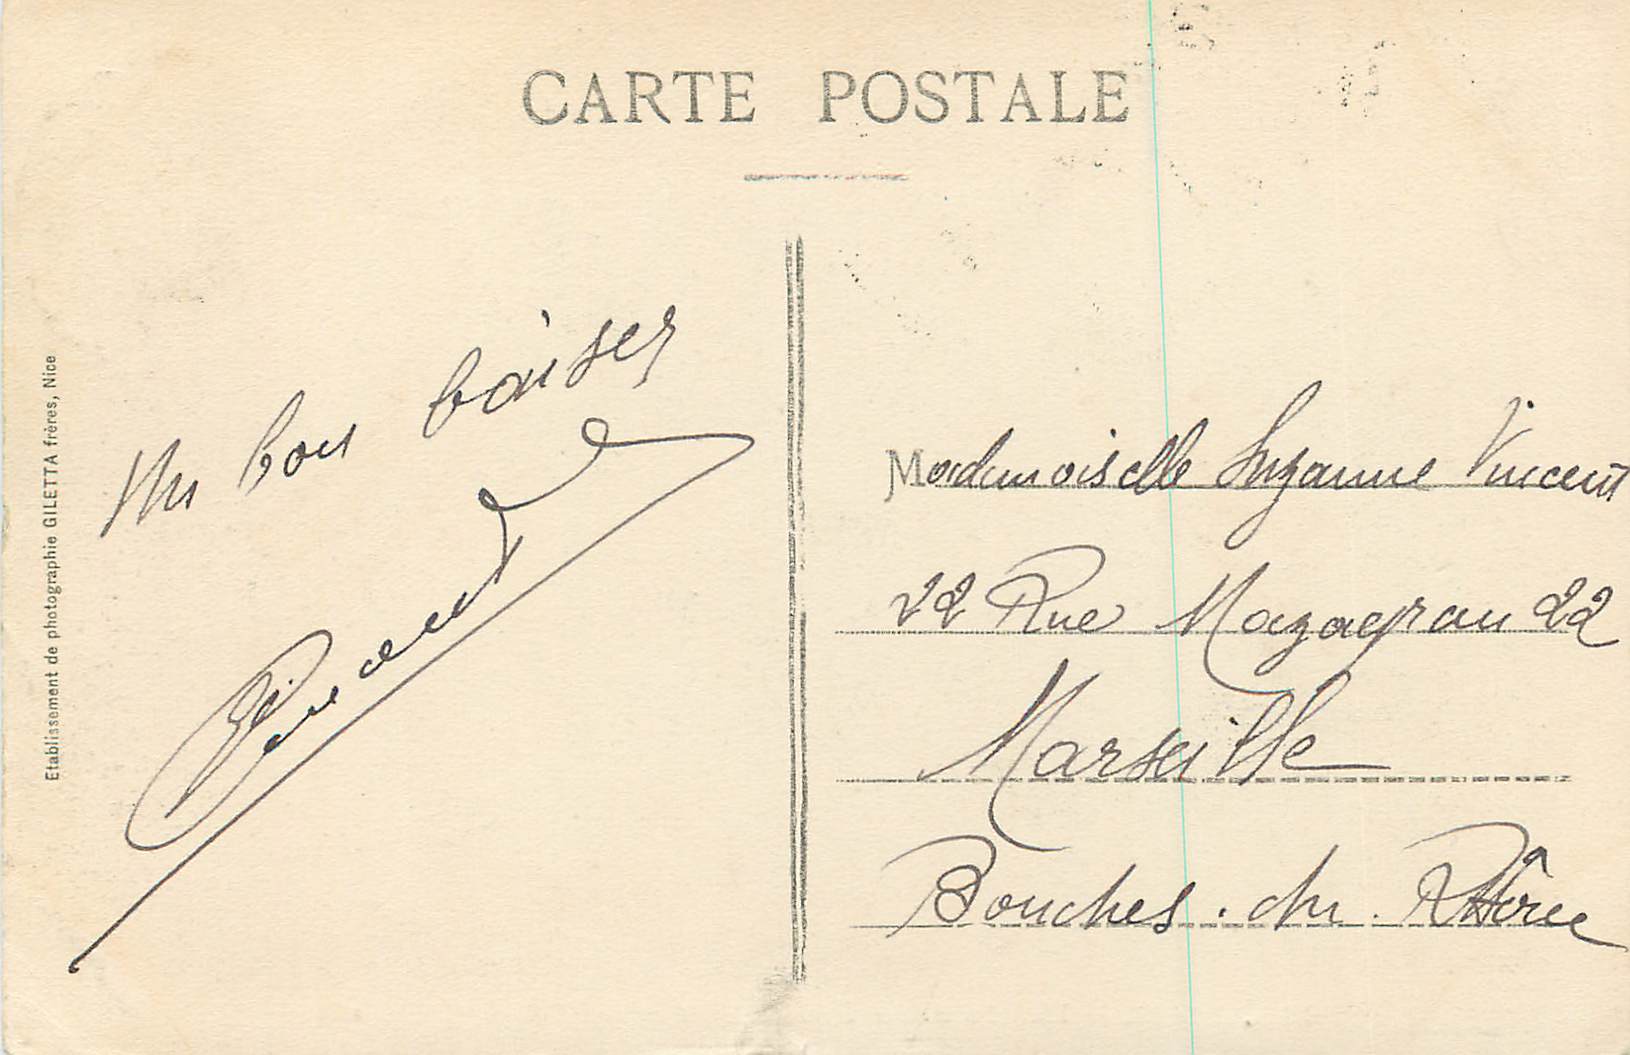 CARTE POSTALE
Etablissement de photographie GILETTA frères, Nice
Un bon baiser
Vincent
Mademoiselle Suzanne Vincent
22 Rue Mazagran 22
Marseille
Bouches. du. Rhône